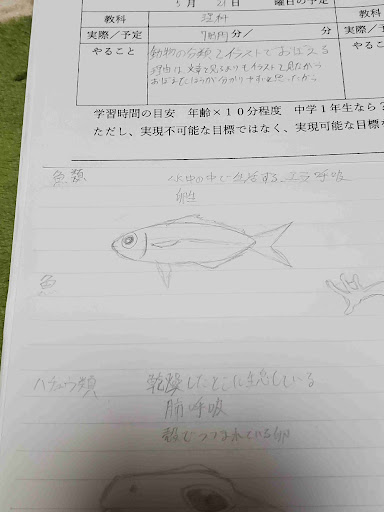 5月21日 曜日の予定
教科 理科 教科
実際／予定 分／ 分 実際／予
やること 動物の分類をイラストでおぼえる やること
理由は文章を見るよりもイラストを見たほうが
学習時間の目安 年齢×10分程度 中学1年生なら?
ただし、実現不可能な目標ではなく、実現可能な目標な
魚類 水中の中で生活する、エラ呼吸
卵生
魚
ハチュウ類 乾燥したとこに生息している
肺呼吸
殻でつつまれている卵